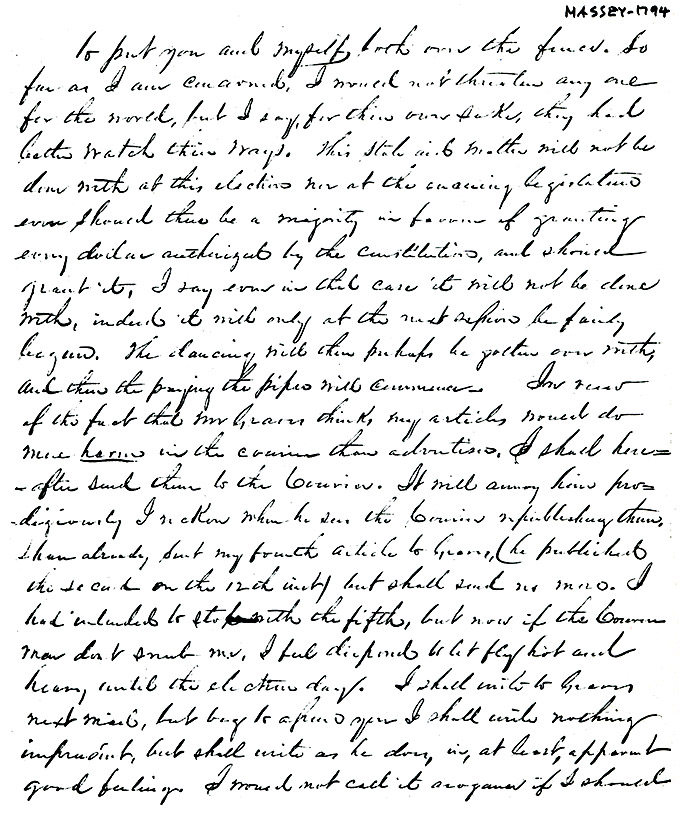 MASSEY-1794
to put you and myself, both over the fence. So
far as I am concerned, I would not threaten any one
for the world, but I say, for their own sake, they had
better watch their ways. This state aid matter will not be
done with at this election nor at the ensuing legislature
even should there be a majority in favour of granting
every dollar authorized by the constitution, and should
grant it, I say even in that case it will not be done
with, indeed it will only at the next session be fairly
begun. The dancing will then perhaps be gotten over with,
and then the paying the piper will commence. In view
of the fact that Mr Graves thinks my articles would do
more harm in the courier than advertiser, I shall here=
=after send them to the Courier. It will annoy him pro=
=digiously I reckon when he sees the Courier republishing them,
I have already sent my fourth article to Graves, (he published
the second on the 12th inst) but shall send no more. I
had intended to stop with the fifth, but now if the Courier
man don't snub me, I feel disposed to let fly hot and
heavy until the election day. I shall write to Graves
next mail, but beg to assure you I shall write nothing
imprudent, but shall write as he does, in, at least, apparent
good feeling. I would not call it arogance if I should